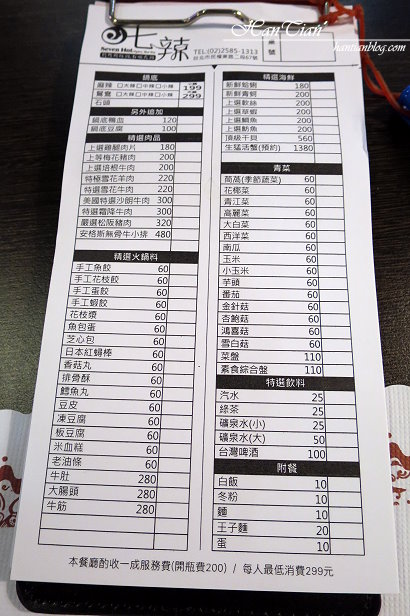 七辣
Seven Hot
TEL:(02)2585-1313
台北市民權東路二段67號
桌號
HanTian
hantianblog.com
鍋底
麻辣 □大辣□中辣□小辣 199
鴛鴦 □大辣□中辣□小辣 299
石頭
另外追加
鍋底鴨血 120
鍋底豆腐 100
精選肉品
上選雞腿肉片 180
上等梅花豬肉 200
上選培根牛肉 200
特極雪花羊肉 220
特選雪花牛肉 220
美國特選沙朗牛肉 300
特選霜降牛肉 300
嚴選松阪豬肉 320
安格斯無骨牛小排 480
精選火鍋料
手工魚餃 60
手工花枝餃 60
手工蛋餃 60
手工蝦餃 60
花枝漿 60
魚包蛋 60
芝心包 60
日本紅蟳棒 60
香菇丸 60
排骨酥 60
鱈魚丸 60
豆皮 60
凍豆腐 60
板豆腐 60
米血糕 60
老油條 60
牛肚 280
大腸頭 280
牛筋 280
精選海鮮
新鮮蛤蜊 180
新鮮青蚵 200
上選軟絲 200
上選草蝦 200
上選鯛魚 200
上選魴魚 200
頂級干貝 560
生猛活蟹(預約) 1380
青菜
茼萵(季節蔬菜) 60
花椰菜 60
青江菜 60
高麗菜 60
大白菜 60
西洋菜 60
南瓜 60
玉米 60
小玉米 60
芋頭 60
番茄 60
金針菇 60
杏鮑菇 60
鴻喜菇 60
雪白菇 60
菜盤 110
素食綜合盤 110
特選飲料
汽水 25
綠茶 25
礦泉水(小) 25
礦泉水(大) 50
台灣啤酒 100
附餐
白飯 10
冬粉 10
麵 10
王子麵 20
蛋 10
本餐廳酌收一成服務費(開瓶費200) / 每人最低消費299元